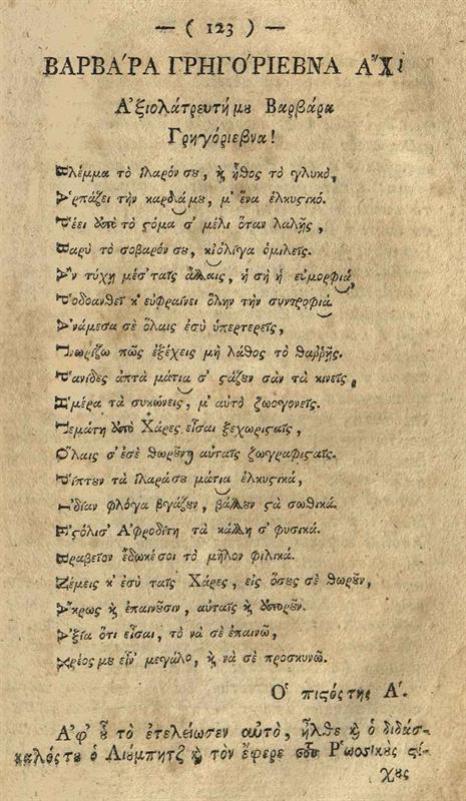 — ( 123 ) —
ΒΑΡΒΑ΄ΡΑ ΓΡΗΓΟ΄ΡΙΕΒΝΑ Α῎Χι
Α᾿ξιολάτρευτή μȣ Βαρβάρα
Γρηγόριεβνα!
Βλέμμα τὸ ἱλαρόν σȣ, ϗ ἦθος τὸ γλυκό,
Α῾ρπάζει τὴν καρδιά μȣ, μ' ἕνα ἑλκυϛικό.
Ρ῾έει ἀπὸ τὸ ϛόμα σ' μέλι ὅταν λαλῇς,
Βαρὺ τὸ σοβαρόν σȣ, κι ὀλίγα ὁμιλεῖς.
Α῎ν τύχῃ μέσ' ταῖς ἄλλαις, ἡ σὴ ἡ εὐμορφιά,
Ρ῾οδοανθεῖ κ' εὐφραίνει ὅλην τὴν συντροφιά
Α᾿νάμεσα σὲ ὅλαις ἐσὺ ὑπερτερεῖς,
Γνωρίζω πῶς ἐξέχεις μὴ λάθος τὸ θαῤῥῇς.
Ρ῾ανίδες ἀπτὰ μάτια σ' ϛάζȣν σὰν τὰ κινεῖς,
Η῞μερα τὰ συκώνεις, μ' αὐτὸ ζωογονεῖς.
Γεμάτη ἀπὸ Χάρες εἶσαι ξεχωριϛαῖς,
Ο῞λαις σ' ἐσὲ θωρȣ͂νȣ αὐταῖς ζωγραφιϛαῖς.
Ρ῾ίπτȣν τὰ ἱλαρά σȣ μάτια ἑλκυϛικά,
Ι᾿δίαν φλόγα βγάζȣν, βάλλȣν ϛὰ σωθικά.
Ε᾿ϛόλισ' Α᾿φροδίτη τὰ κάλλη σ' φυσικά.
Βραβεῖον ἔδωκέ σοι τὸ μῆλον φιλικά.
Νέμεις κ' ἐσὺ ταῖς Χάρες, εἰς ὅσȣς σὲ θωρȣ͂ν,
Α῎κρως ϗ ἐπαινȣ͂σιν, αὐταῖς ϗ ἀπορȣ͂ν.
Α᾿ξία ὅτι εἶσαι, τὸ νὰ σὲ ἐπαινῶ,
Χρέος μȣ εἶν' μεγάλο, ϗ νὰ σὲ προσκυνῶ.
Ο῾ πιϛός της Α΄.
Α᾿φ' ȣ῟ τὸ ἐτελείωσεν αὐτὸ, ἦλθε ϗ ὁ διδάσ-
καλός τȣ ὁ Λιύμπητζ ϗ τὸν ἔφερε ϛȣ̀ς Ρ῾ωσικȣ̀ς ϛί-
χȣς